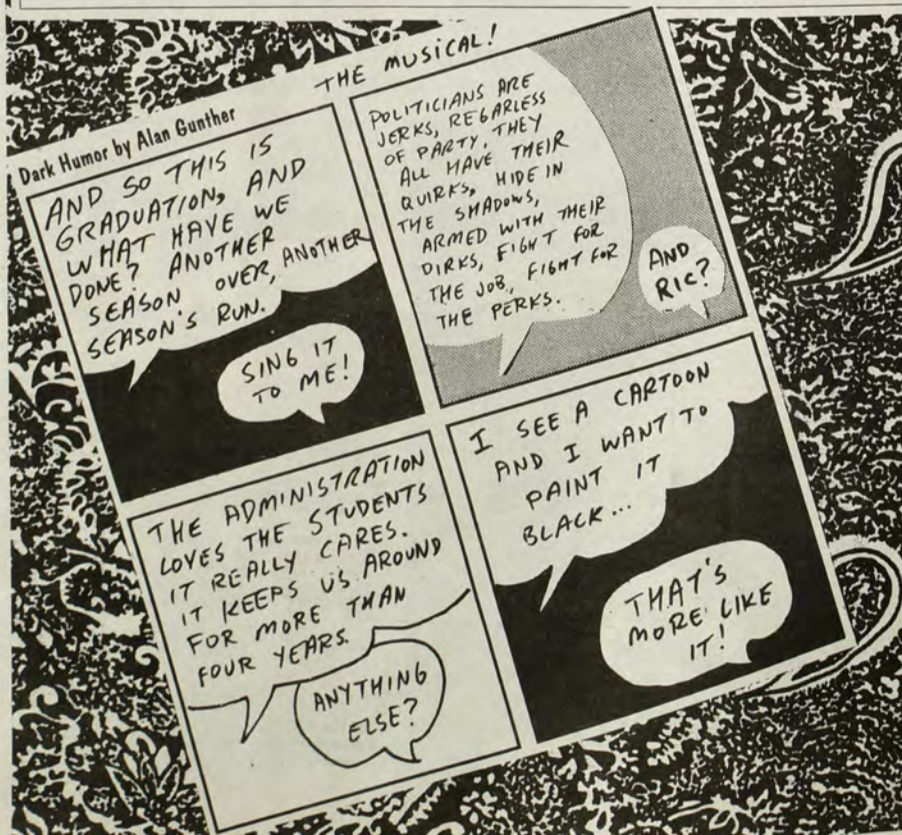 Dark Humor by Alan Gunther
THE MUSICAL!
AND SO THIS IS
GRADUATION, AND
WHAT HAVE WE
DONE? ANOTHER
SEASON OVER, ANOTHER
SEASON'S RUN.
SING IT
TO ME!
POLITICIANS ARE
JERKS, REGARLESS
OF PARTY. THEY
ALL HAVE THEIR
QUIRKS, HIDE IN
THE SHADOWS,
ARMED WITH THEIR
DIRKS, FIGHT FOR
THE JOB, FIGHT FOR
THE PERKS.
AND
RIC?
THE ADMINISTRATION
LOVES THE STUDENTS
IT REALLY CARES.
IT KEEPS US AROUND
FOR MORE THAN
FOUR YEARS.
ANYTHING
ELSE?
I SEE A CARTOON
AND I WANT TO
PAINT IT
BLACK...
THAT'S
MORE LIKE
IT!